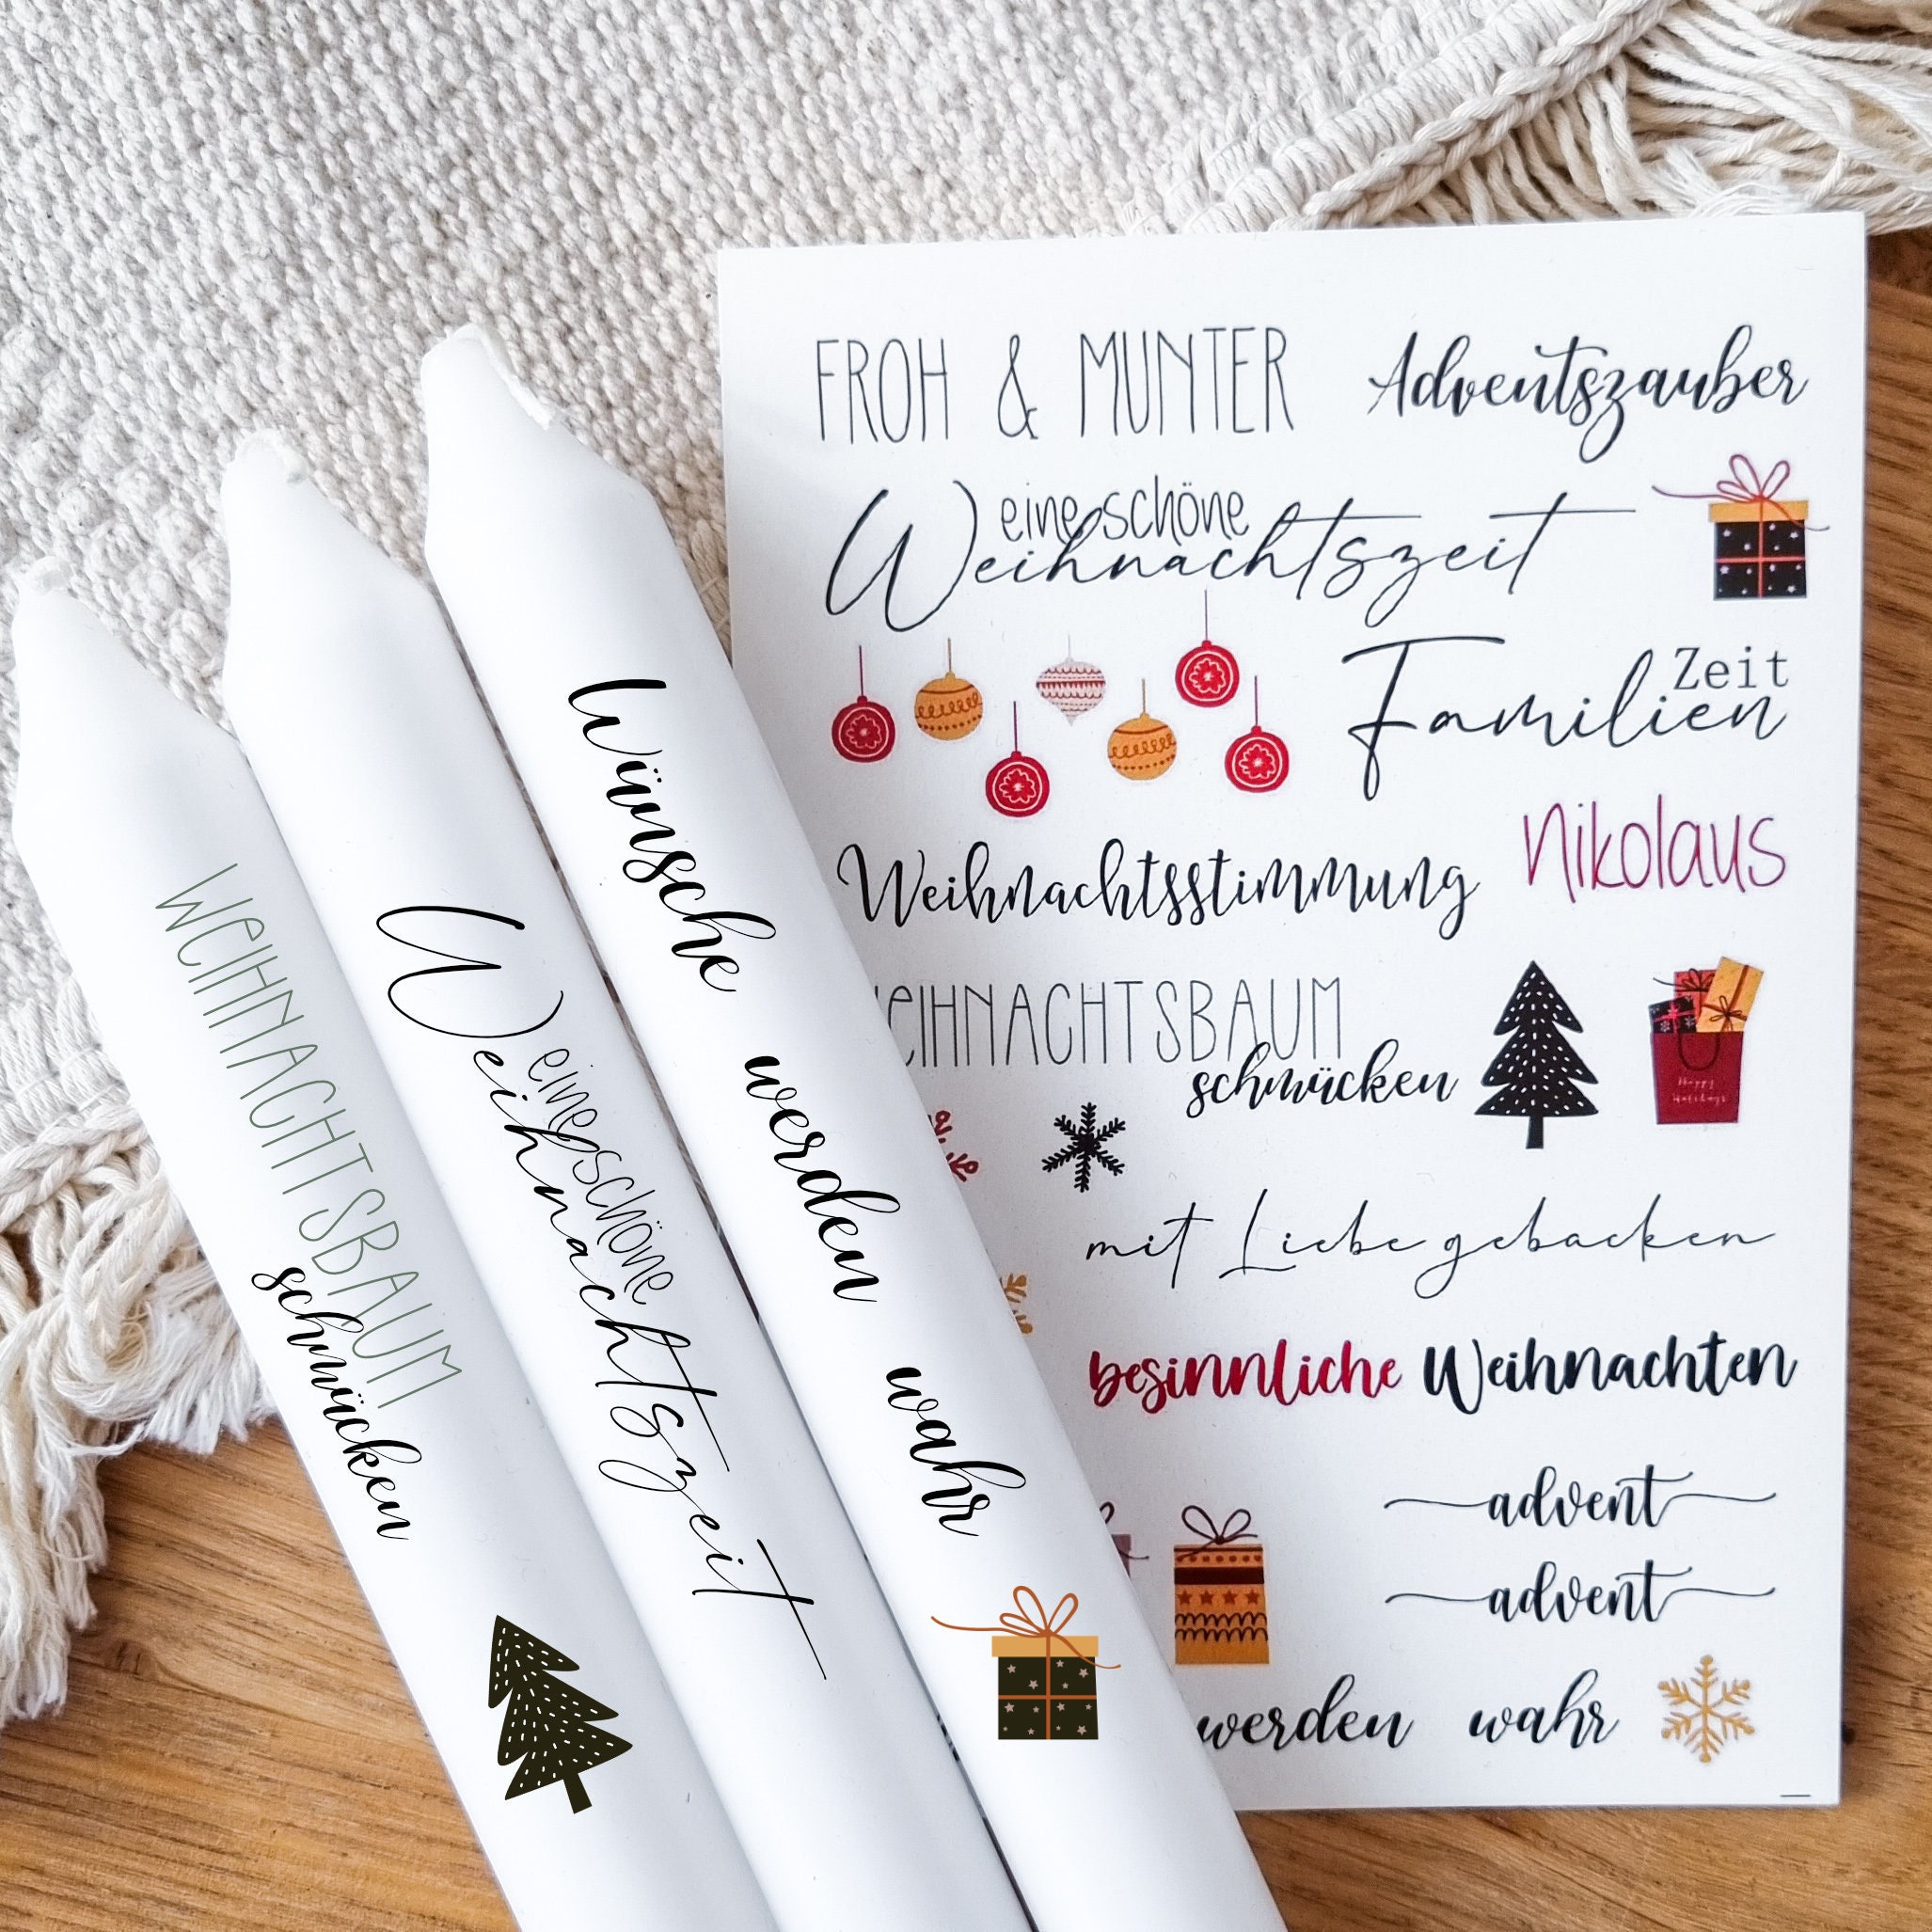 WEIHNACHTSBAUM
schmücken
eine schöne
Weihnachtszeit
Wünsche werden wahr
FROH & MUNTER
Adventszauber
eine schöne
Weihnachtszeit
Zeit
Familien
Nikolaus
Weihnachtsstimmung
WEIHNACHTSBAUM
schmücken
Happy
Holidays
mit Liebe gebacken
besinnliche Weihnachten
advent
advent
werden wahr